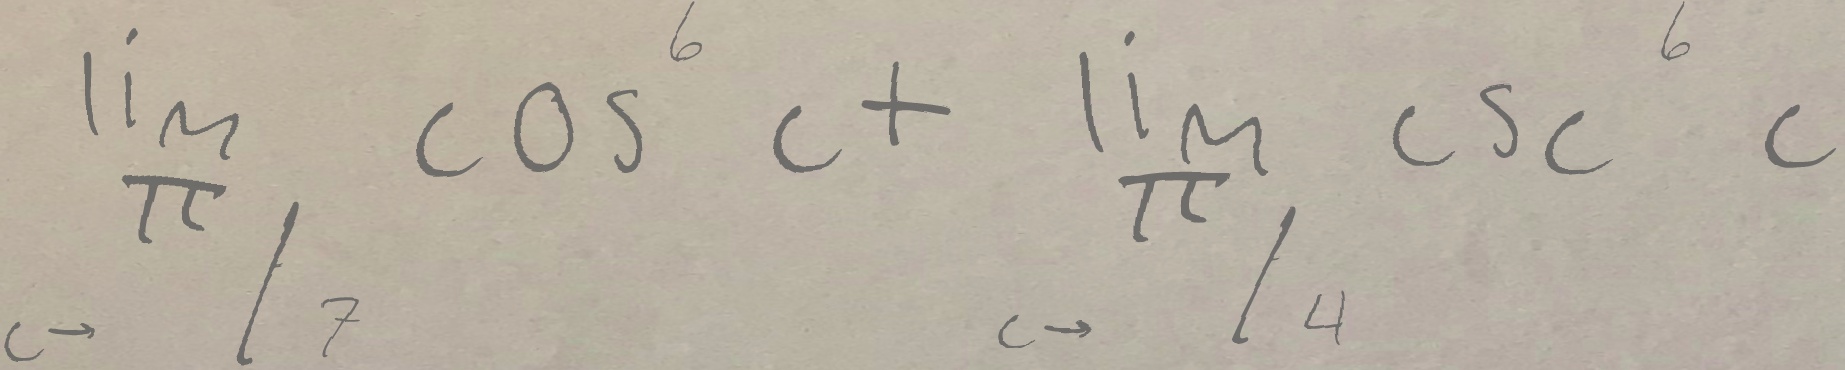 lim_{c→π/7} cos^6 c + lim_{c→π/4} csc^6 c